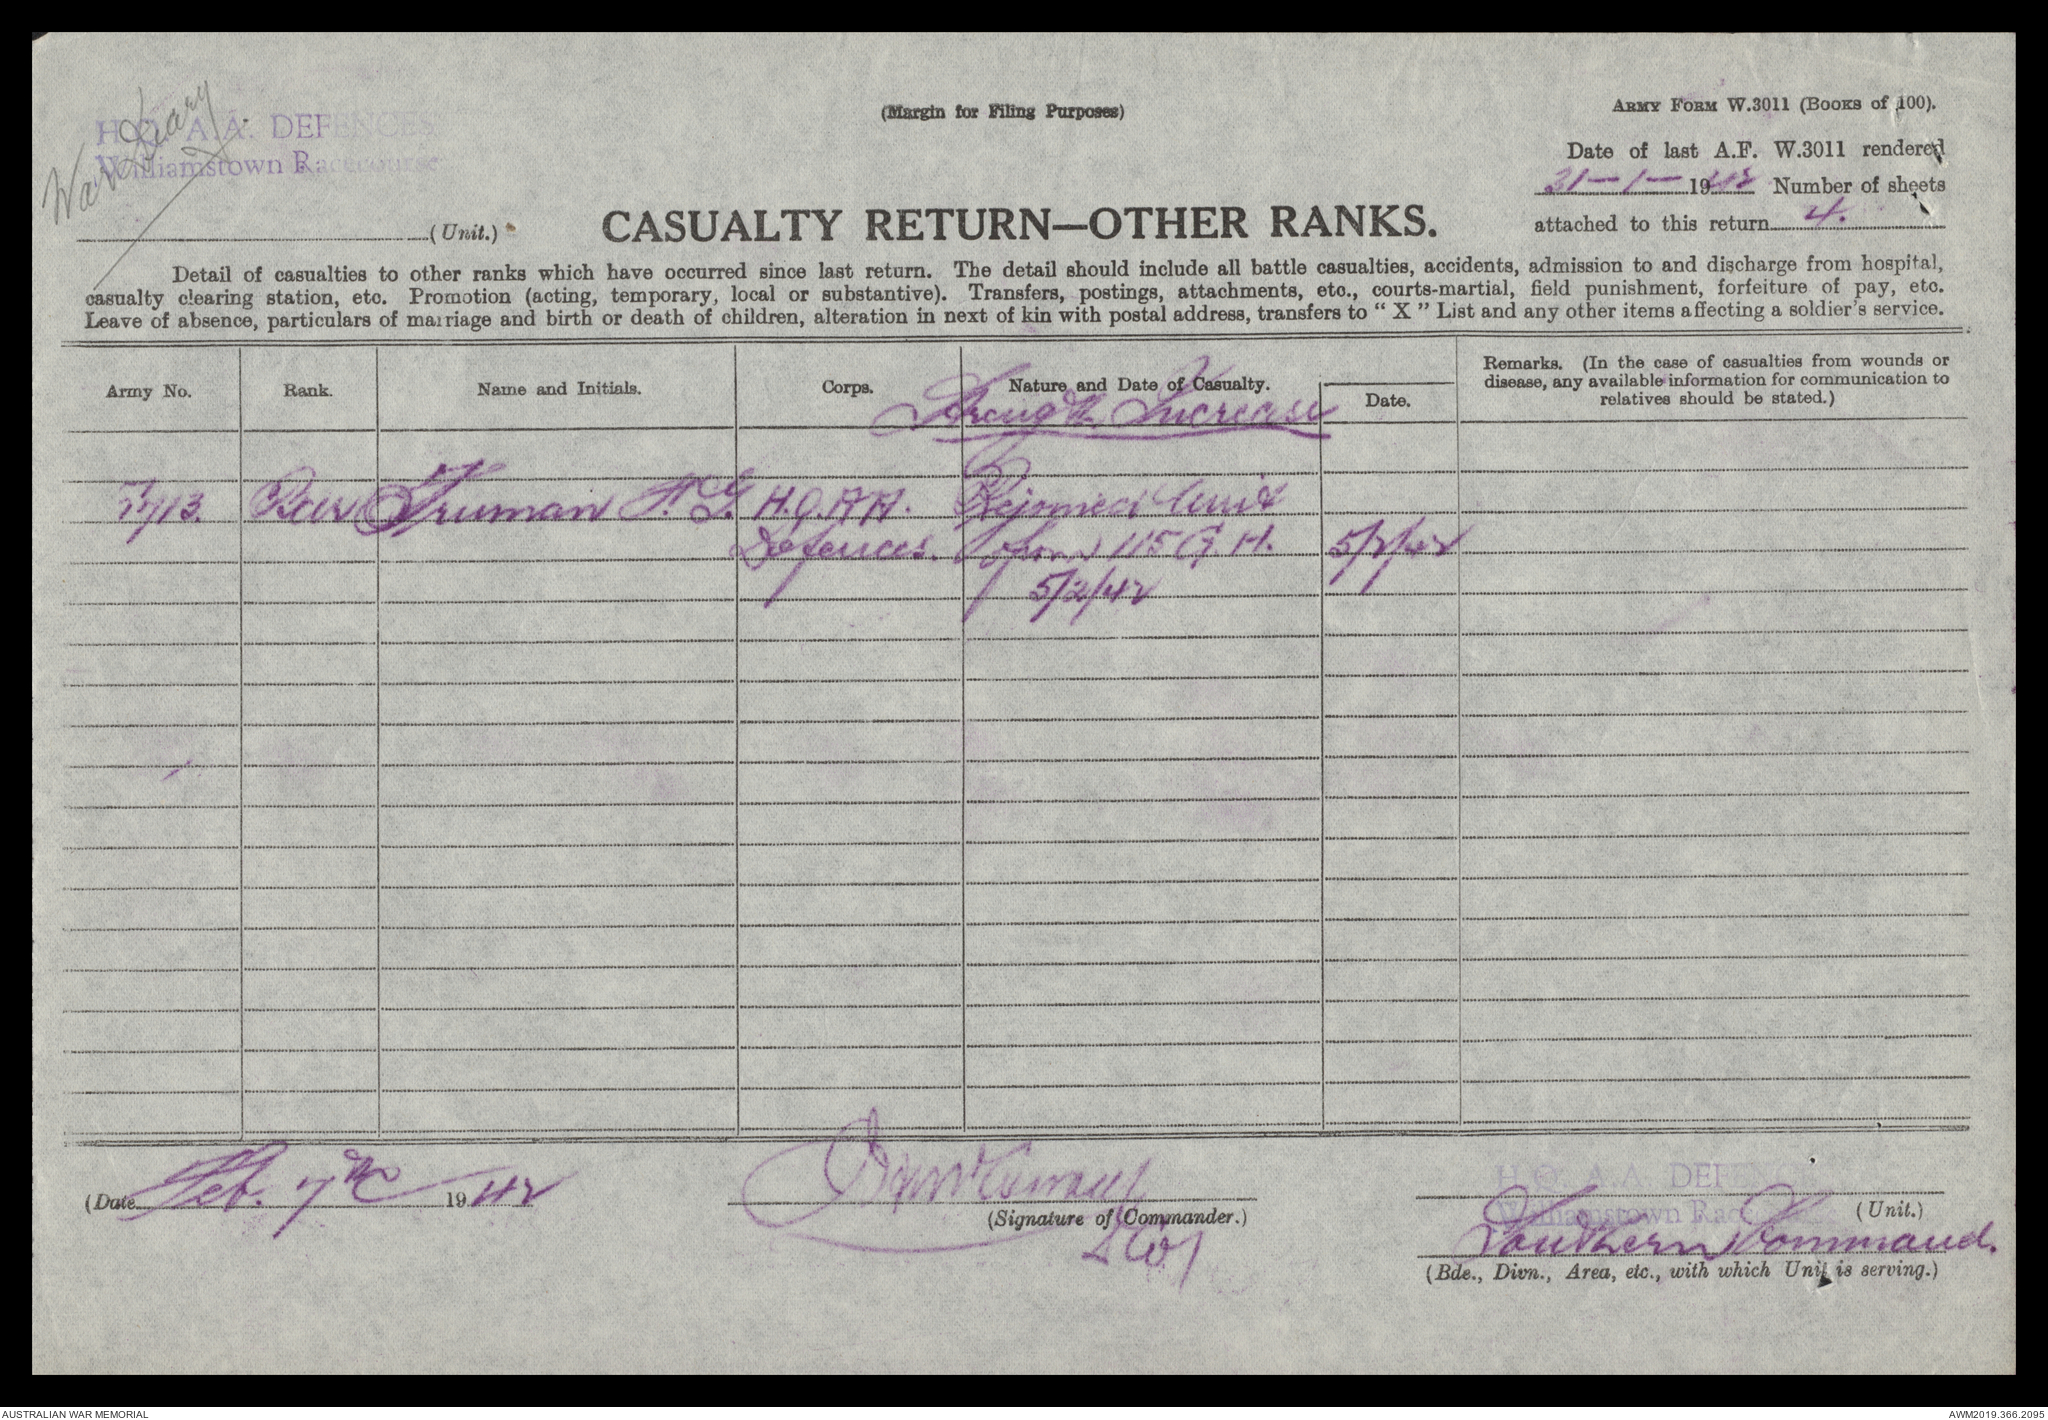 War Diary
H.Q. A.A. DEFENCES
Williamstown Racecourse
(Unit.)
(Margin for Filing Purposes)
ARMY FORM W.3011 (BOOKS of 100).
Date of last A.F. W.3011 rendered
31-1-1942 Number of sheets
attached to this return 4.
CASUALTY RETURN—OTHER RANKS.
Detail of casualties to other ranks which have occurred since last return. The detail should include all battle casualties, accidents, admission to and discharge from hospital,
casualty clearing station, etc. Promotion (acting, temporary, local or substantive). Transfers, postings, attachments, etc., courts-martial, field punishment, forfeiture of pay, etc.
Leave of absence, particulars of marriage and birth or death of children, alteration in next of kin with postal address, transfers to “ X ” List and any other items affecting a soldier's service.
Army No. Rank. Name and Initials. Corps. Nature and Date of Casualty. Date. Remarks. (In the case of casualties from wounds or
disease, any available information for communication to
relatives should be stated.)
Strength Increase
Truman H.G. H.Q.A.A. Rejoined Unit
Defences. from 115 G.H. 5/2/42
5/2/42
(Date Feb. 7th 1942
(Signature of Commander.)
H.Q. A.A. DEFENCES
Williamstown Racecourse
(Unit.)
Southern Command.
(Bde., Divn., Area, etc., with which Unit is serving.)
AUSTRALIAN WAR MEMORIAL AWM2019.366.2095